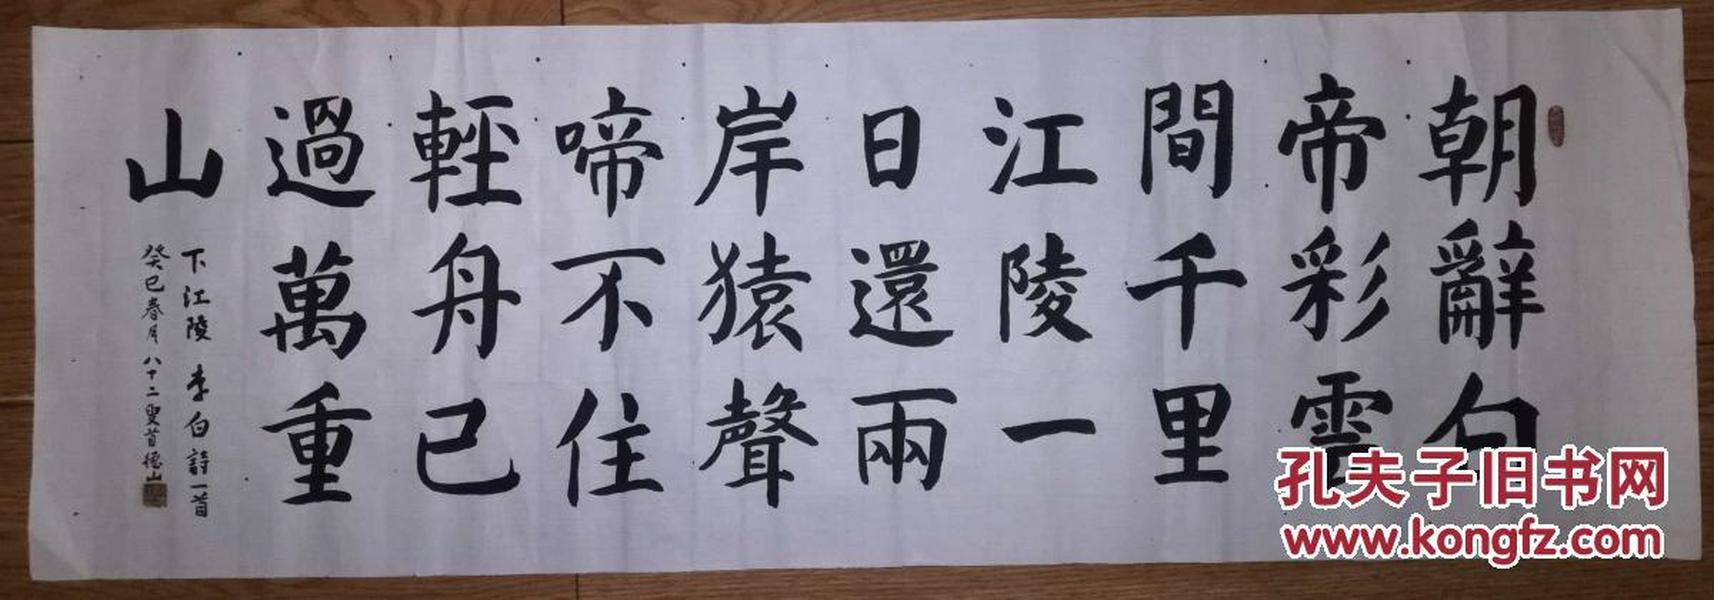 朝辭白
帝彩雲
間千里
江陵一
日還兩
岸猿聲
啼不住
輕舟已
過萬重
山
下江陵 李白詩一首
癸巳春月八十二叟首德山
孔夫子旧书网
www.kongfz.com